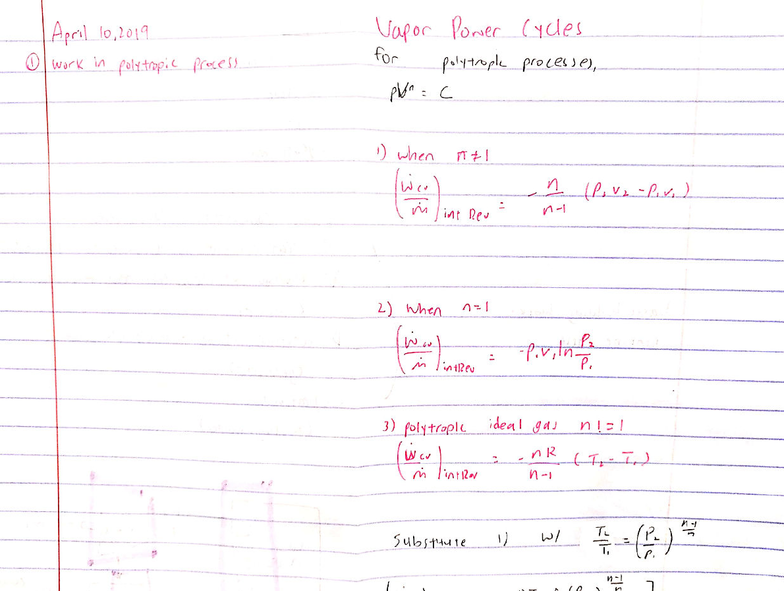 April 10, 2019
① work in polytropic process
Vapor Power Cycles
for polytropic processes,
pVⁿ = C
1) when n≠1
(Ẇcv/ṁ)int Rev = -n/(n-1) (P₂v₂ - P₁v₁)
2) when n=1
(Ẇcv/ṁ)intRev = -P₁v₁ ln P₂/P₁
3) polytropic ideal gas n!=1
(Ẇcv/ṁ)intRev = -nR/(n-1) (T₂ - T₁)
Substitute 1) w/ T₂/T₁ = (P₂/P₁)^((n-1)/n)